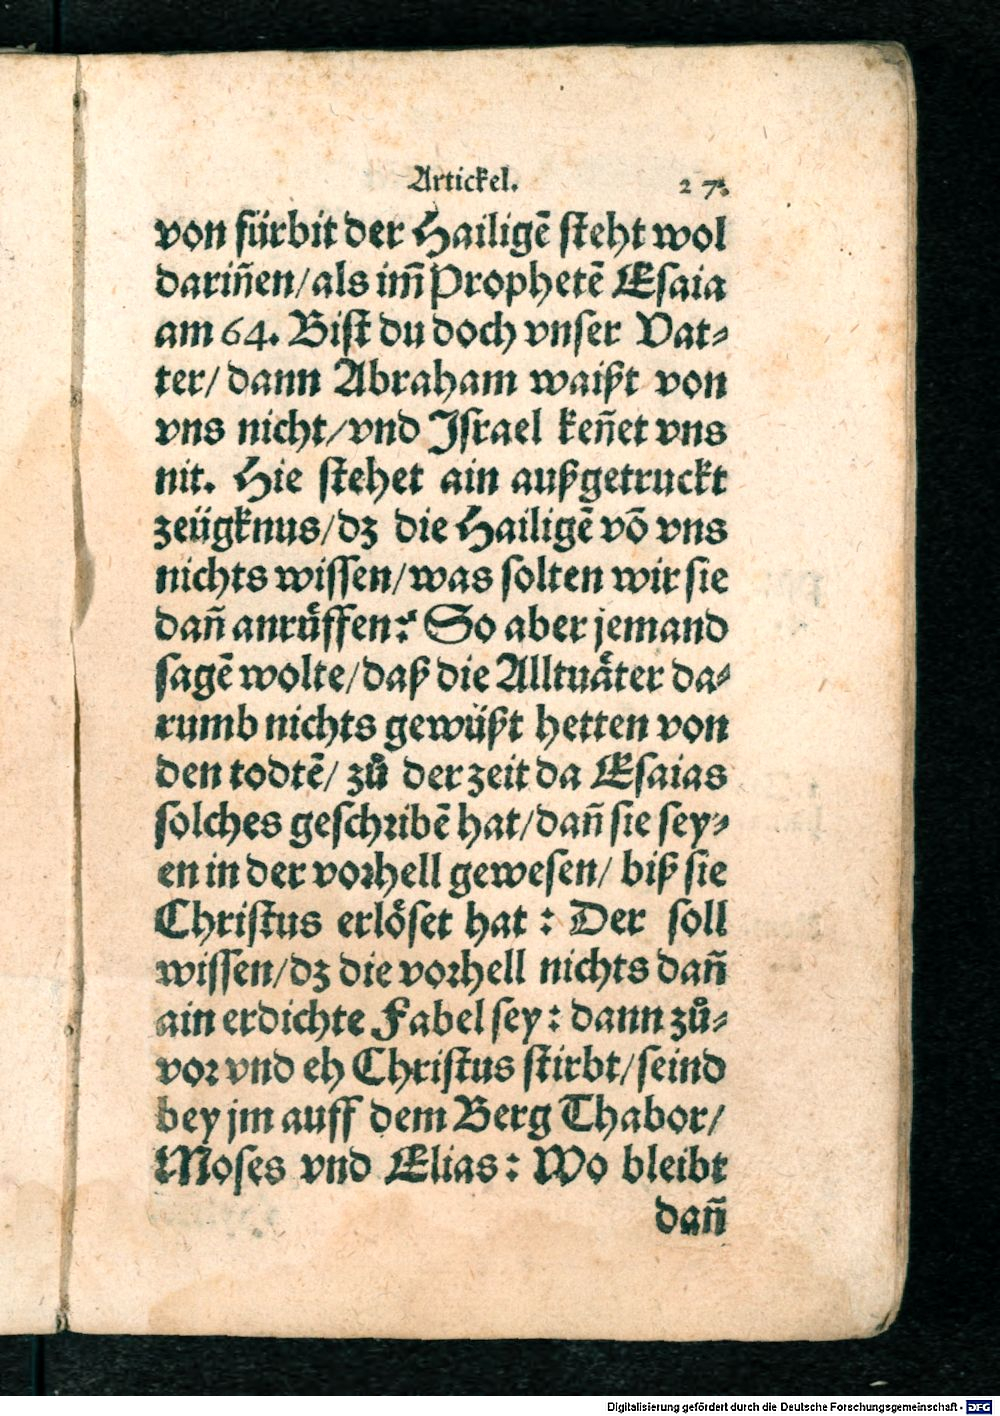 Artickel. 27.
von fürbit der Hailigē steht wol
dariñen/als im̃ Prophetē Esaia
am 64. Bist du doch vnser Vat⸗
ter/ dann Abraham waißt von
vns nicht/vnd Israel keñet vns
nit. Hie stehet ain außgetruckt
zeügknus/dz die Hailigē vō vns
nichts wissen/was solten wir sie
dañ anrůffen? So aber jemand
sagē wolte/daß die Alltuäter da⸗
rumb nichts gewüßt hetten von
den todtē/ zů der zeit da Esaias
solches geschribē hat/dañ sie sey⸗
en in der vorhell gewesen/ biß sie
Christus erlöset hat : Der soll
wissen/dz die vorhell nichts dañ
ain erdichte Fabel sey : dann zů⸗
vor vnd eh Christus stirbt/seind
bey jm auff dem Berg Thabor/
Moses vnd Elias : Wo bleibt
dañ
Digitalisierung gefördert durch die Deutsche Forschungsgemeinschaft - DFG